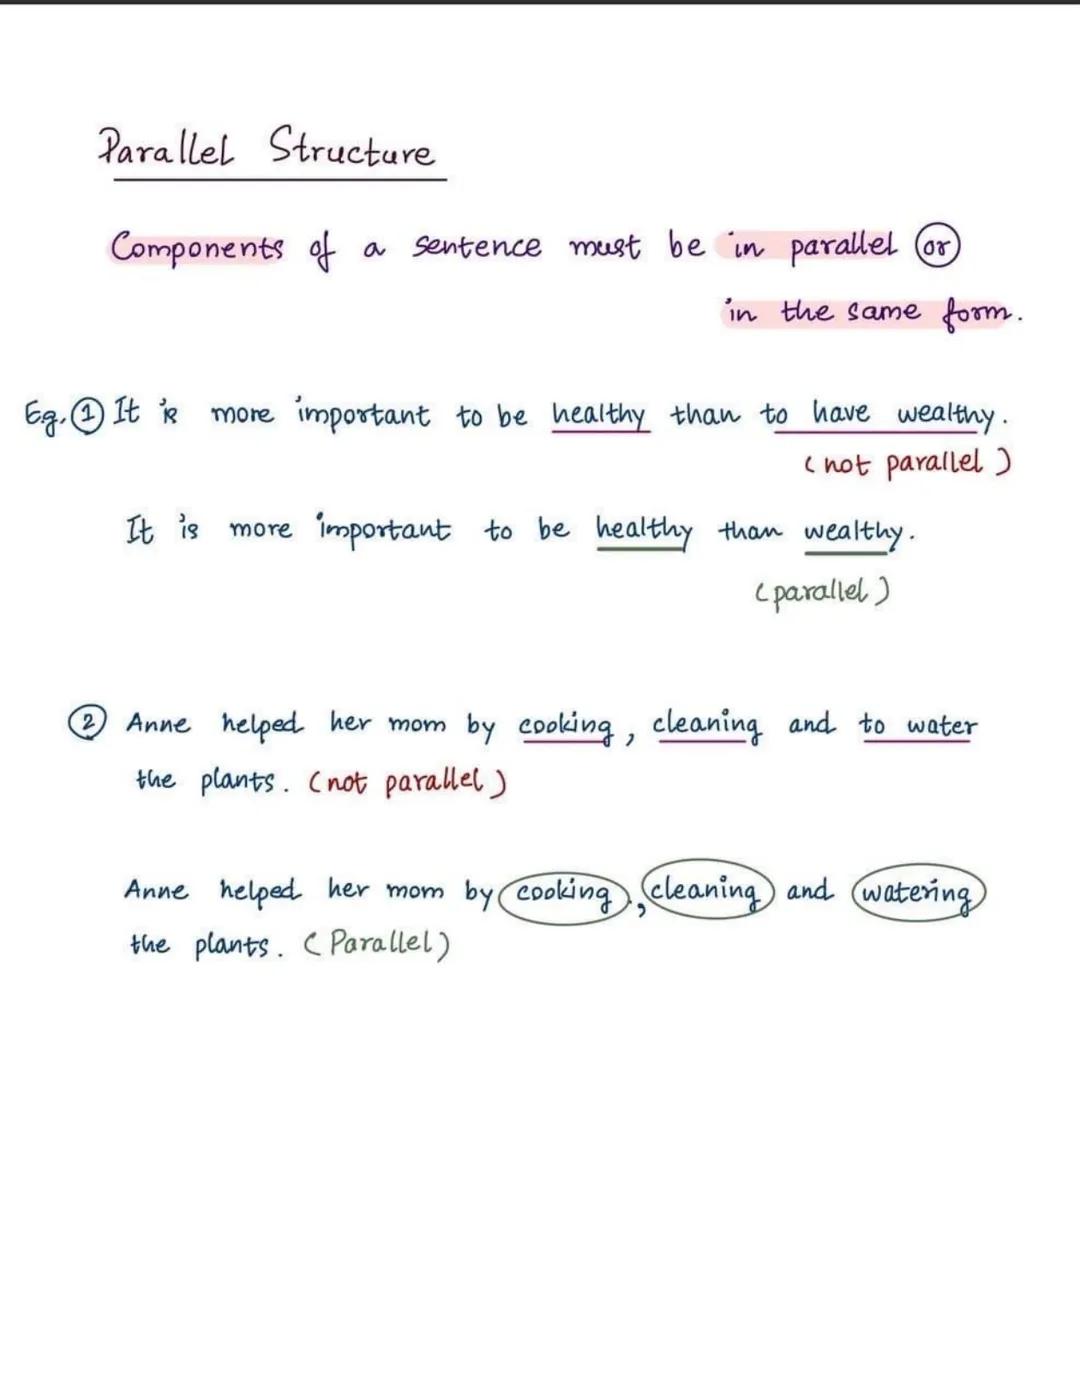 Parallel Structure
Components of a sentence must be in parallel or
in the same form.
Eg. 1 It is more important to be healthy than to have wealthy.
(not parallel)
It is more important to be healthy than wealthy.
(parallel)
2 Anne helped her mom by cooking, cleaning and to water
the plants. (not parallel)
Anne helped her mom by cooking, cleaning and watering
the plants. (Parallel)